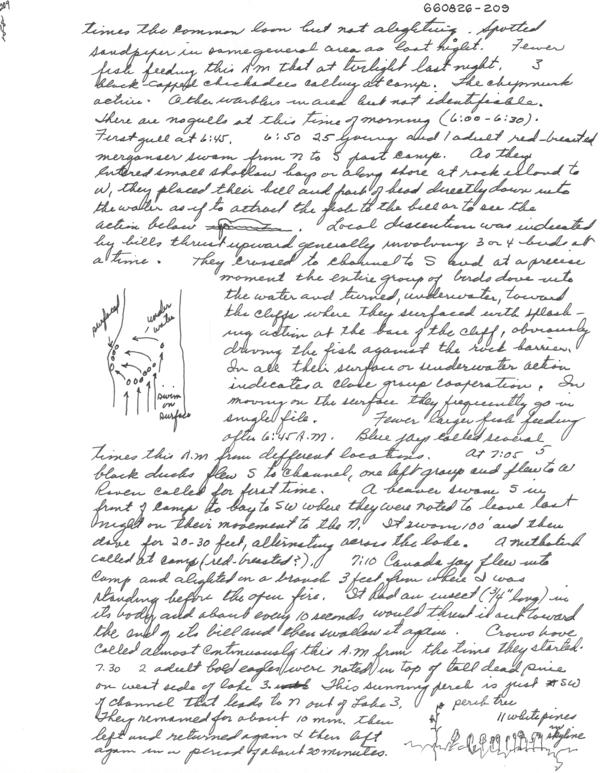 660826-209
209
times the common loon but not alighting. Spotted
sandpiper in same general area as last night. Fewer
fish feeding this A.M that at twilight last night. 3
black capped chickadees calling at camp. The chipmunk
active. Other warblers in area but not identifiable.
There are no gulls at this time of morning (6:00-6:30).
First gull at 6:45. 6:50 25 young and 1 adult red-breasted
merganser swam from N to S past camp. As they
entered small shallow bays or along shore at rock island to
W, they placed their bill and part of head directly down into
the water as if to attract the fish to the bill or to see the
action below. Local discention was indicated
by bills thrust upward generally involving 3 or 4 birds at
a time. They crossed to channel to S and at a precise
moment the entire group of birds dove into
the water and turned, underwater, toward
the cliffs where they surfaced with splash-
ing action at the base of the cliff, obviously
driving the fish against the rock barrier.
In all their surface or underwater action
indicates a close group cooperation. In
moving on the surface they frequently go in
single file. Fewer larger fish feeding
after 6:45 A.M. Blue jay called several
surfaced
under
water
swim
on
surface
times this A.M from different locations. At 7:05 5
black ducks flew S to channel, one left group and flew to W
Raven called for first time. A beaver swam S in
front of camp to bay to SW where they were noted to leave last
night on their movement to the N. It swam 100' and then
dove for 20-30 feet, alternating across the lake. A nuthatch
called at camp (red-breasted?). 7:10 Canada jay flew into
camp and alighted on a branch 3 feet from where I was
standing before the open fire. It had an insect (3/4" long) in
its body and about every 10 seconds would thrust it out toward
the end of its bill and then swallow it again. Crows have
called almost continuously this A.M from the time they started.
7:30 2 adult bald eagles were noted in top of tall dead pine
on west side of lake 3. This sunning perch is just SW
of channel that leads to N out of Lake 3.
They remained for about 10 min. then
left and returned again & then left
again in a period of about 20 minutes.
perch tree
11 white pines
in
skyline